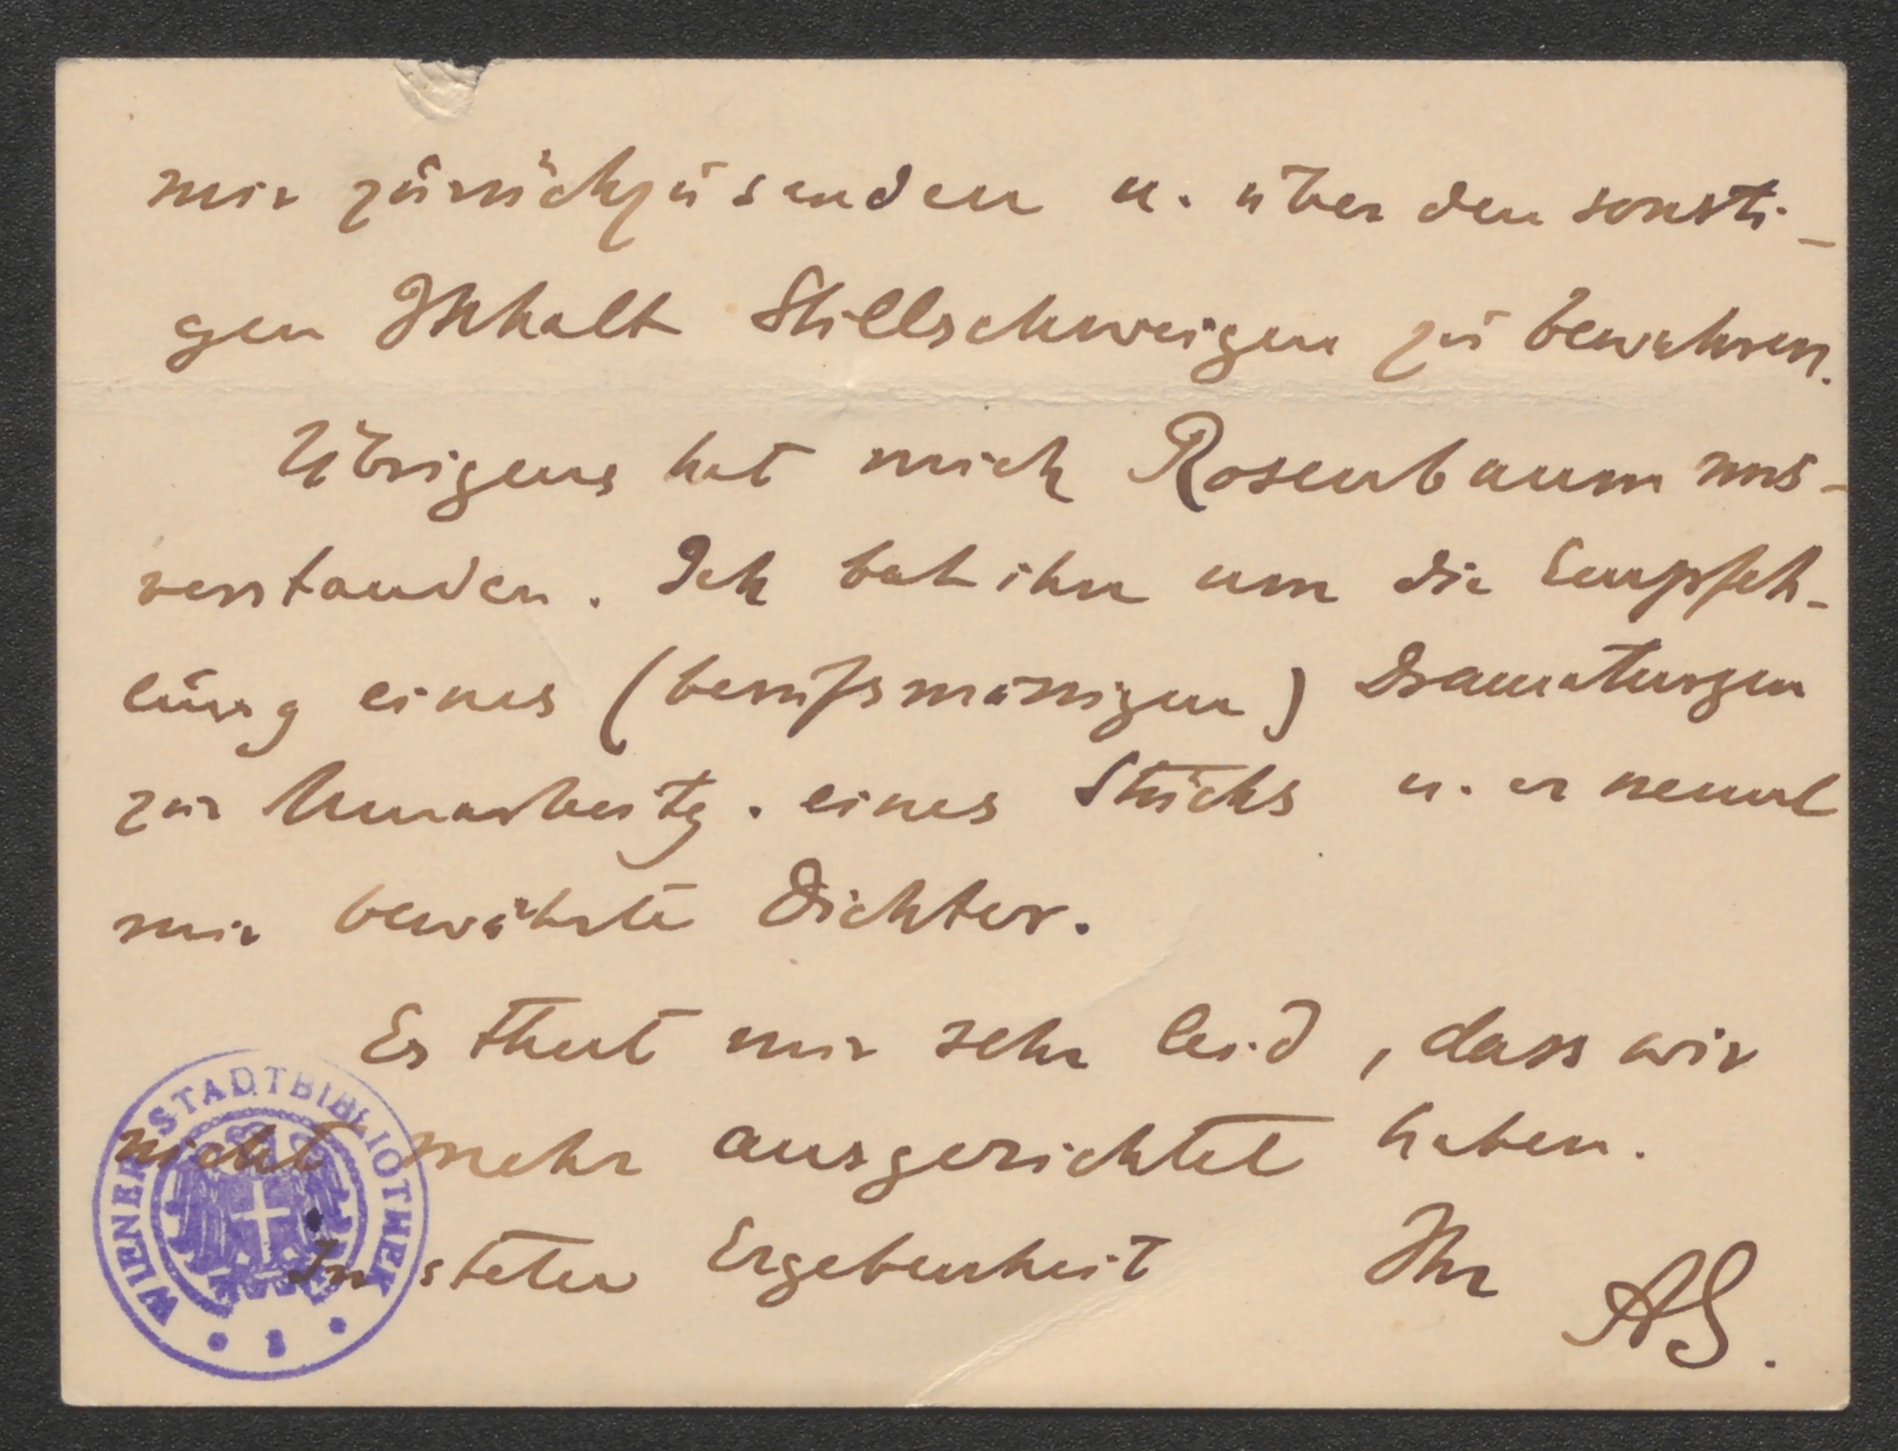 mir zurückzusenden u. über den sonsti-
gen Inhalt Stillschweigen zu bewahren.
Übrigens hat mich Rosenbaum mis-
verstanden. Ich bat ihn um die Empfeh-
lung eines (berufsmässigen) Dramaturgen
zur Umarbeitg. eines Stücks u. er nennt
mir bewährte Dichter.
Es thut mir sehr leid, dass wir
nicht mehr ausgerichtet haben.
In steter Ergebenheit Ihr AS.
WIENER STADTBIBLIOTHEK